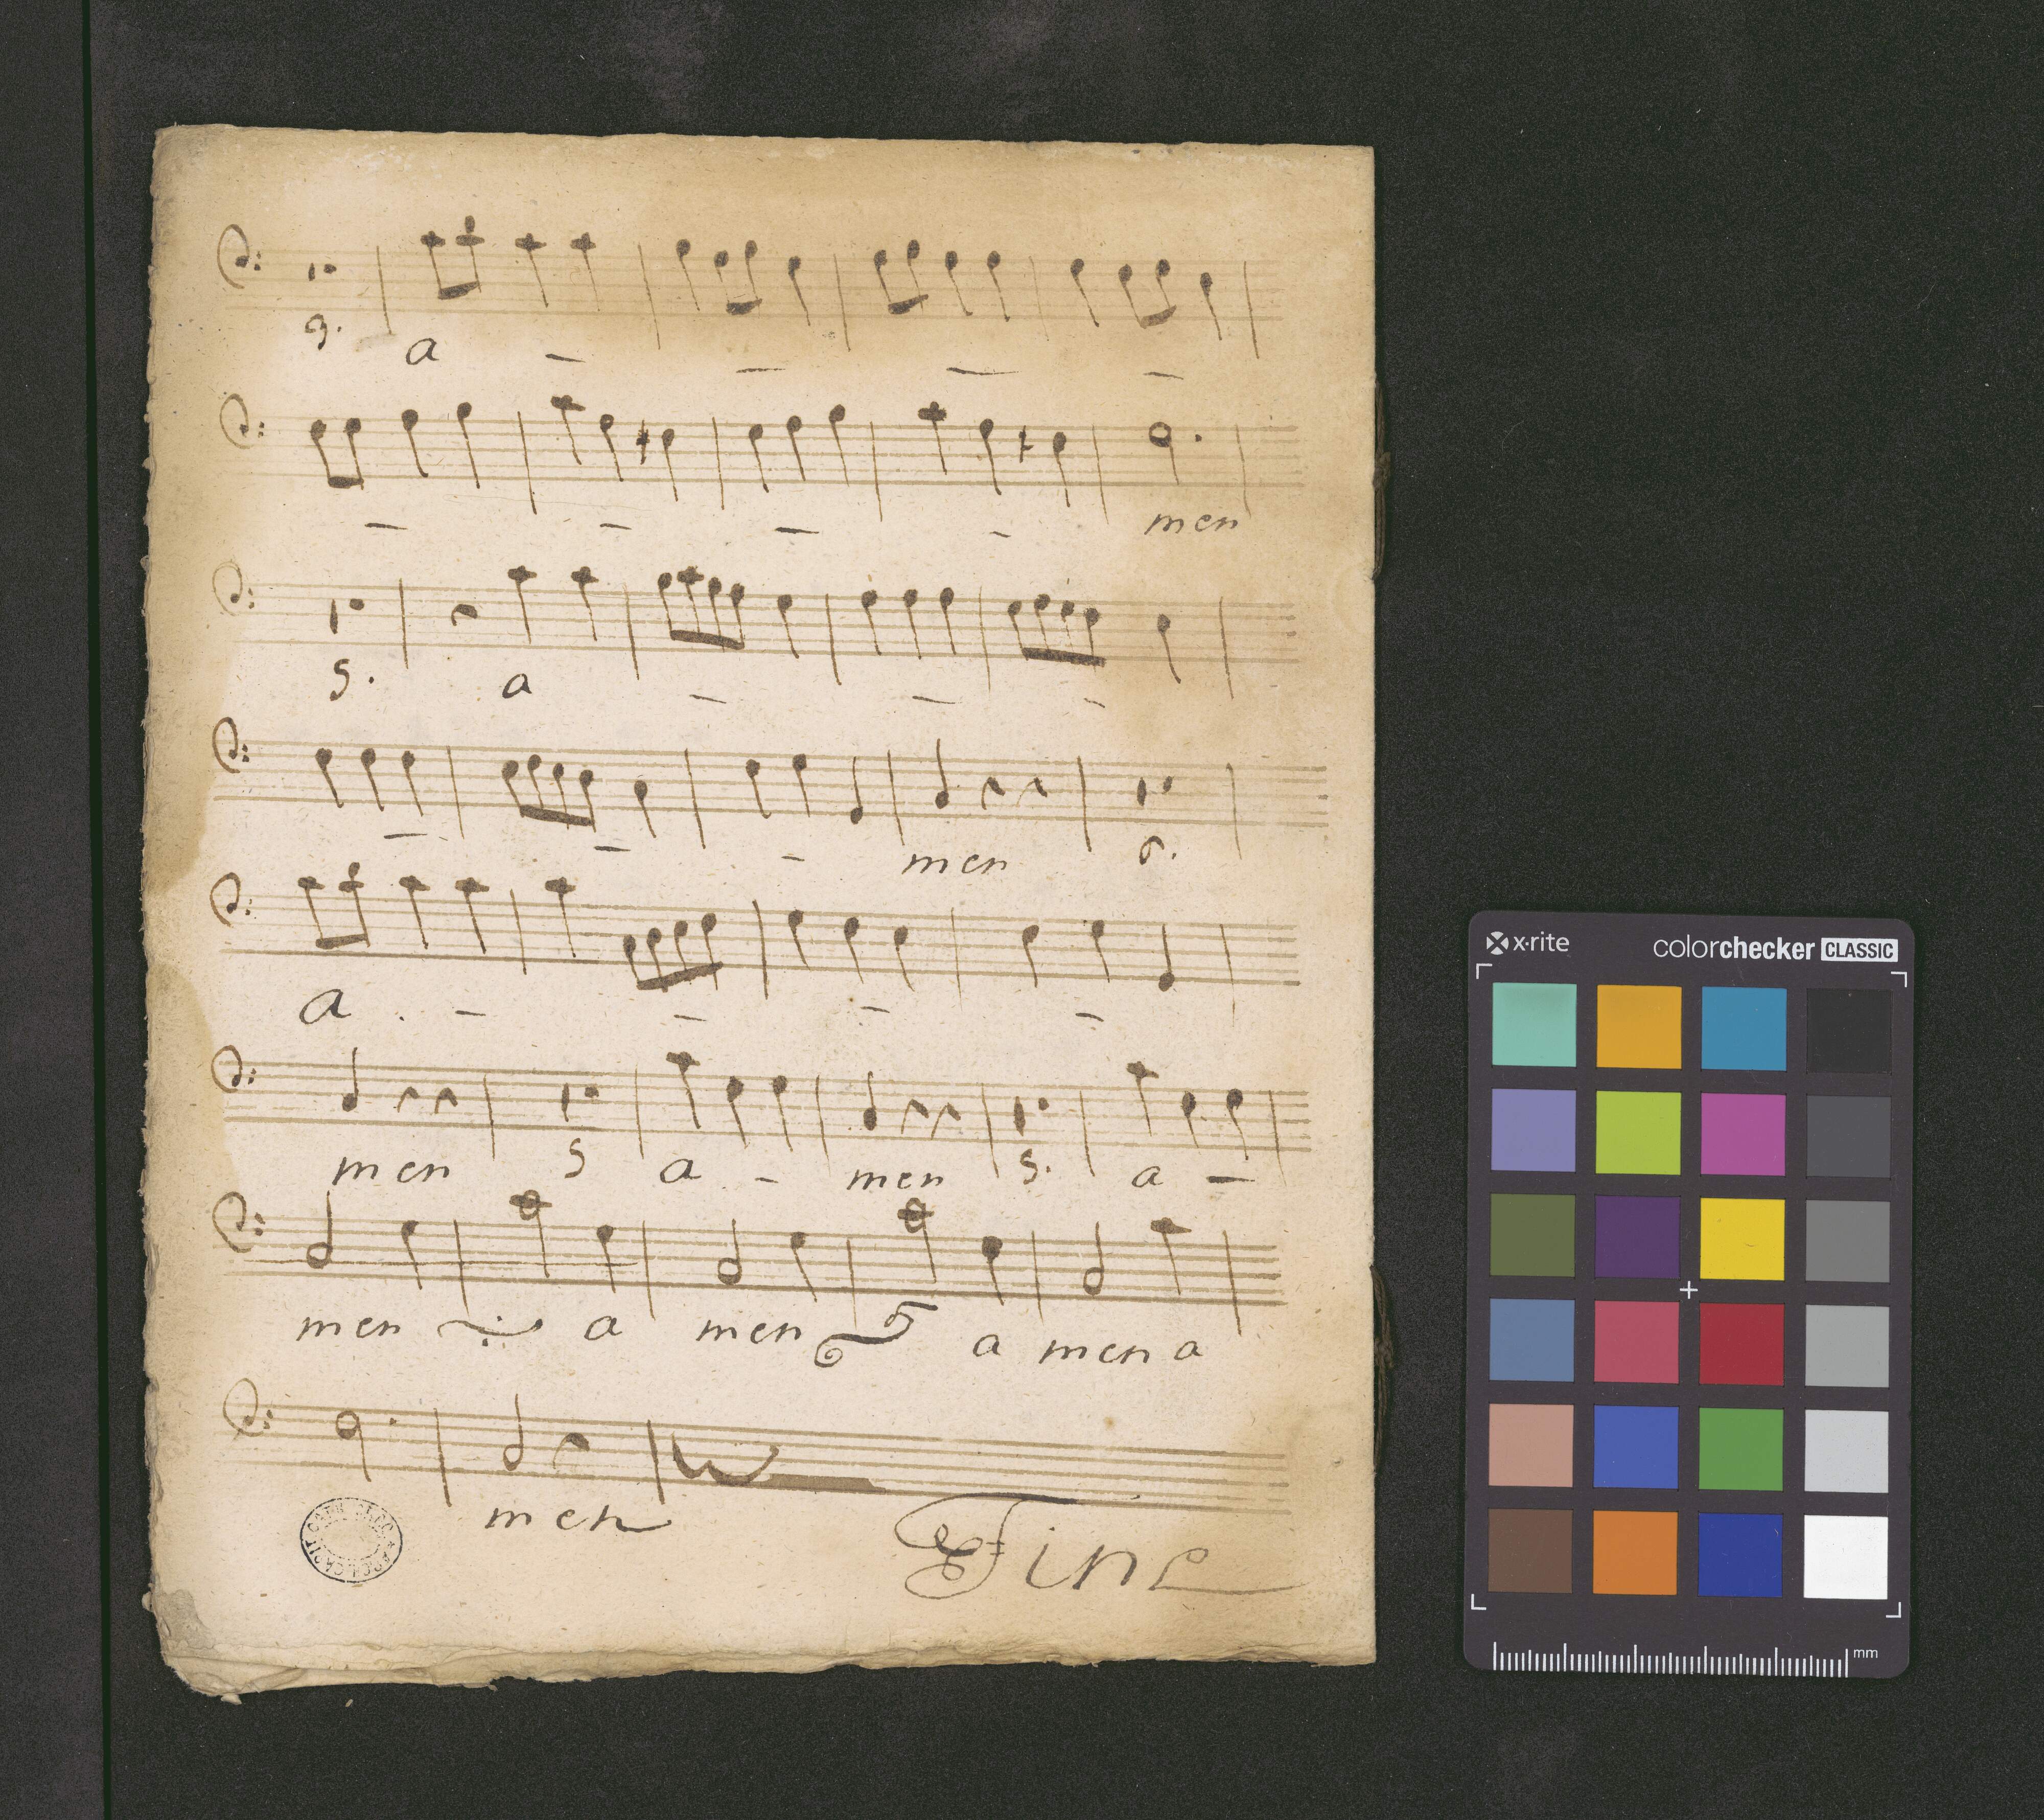 9.
a - - - -
- - - - men
5. a - - -
- - - men 6.
a . - - - -
men 5 a . - men 5. a -
men a men a men a
men
Fine
x·rite colorchecker CLASSIC
mm